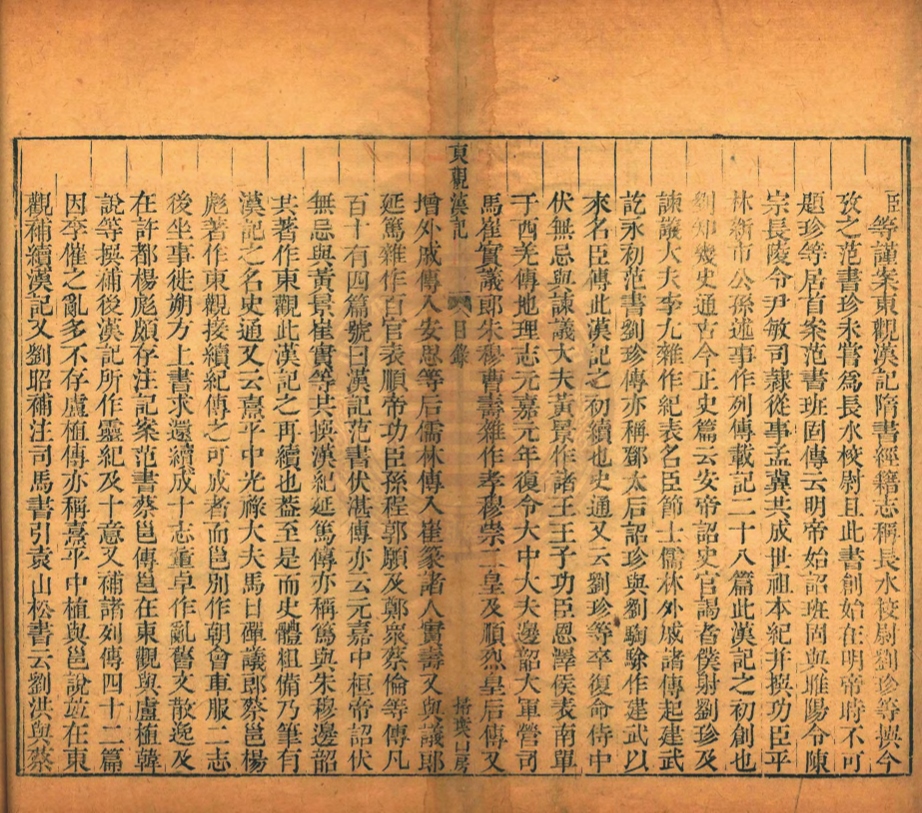 臣等謹案東觀漢記隋書經籍志稱長水校尉劉珍等撰今
攷之范書珍未嘗爲長水校尉且此書創始在明帝時不可
題珍等居首案范書班固傳云明帝始詔班固與睢陽令陳
宗長陵令尹敏司隷從事孟冀共成世祖本紀并撰功臣平
林新市公孫述事作列傳載記二十八篇此漢記之初創也
劉知幾史通古今正史篇云安帝詔史官謁者僕射劉珍及
諫議大夫李尤雜作紀表名臣節士儒林外戚諸傳起建武
訖永初范書劉珍傳亦稱鄧太后詔珍與劉騊駼作建武以
來名臣傳此漢記之初續也史通又云劉珍等卒復命侍中
伏無忌與諫議大夫黃景作諸王王子功臣恩澤侯表南單
于西羌傳地理志元嘉元年復令大中大夫邊韶大軍營司
馬崔寔議郎朱穆曹壽雜作孝穆崇二皇及順烈皇后傳又
東觀漢記 目錄 掃葉山房
增外戚傳入安思等后儒林傳入崔篆諸人寔壽又與議郎
延篤雜作百官表順帝功臣孫程郭願及鄭衆蔡倫等傳凡
百十有四篇號曰漢記范書伏湛傳亦云元嘉中桓帝詔伏
無忌與黃景崔寔等共撰漢紀延篤傳亦稱篤與朱穆邊韶
共著作東觀此漢記之再續也葢至是而史體粗備乃肇有
漢記之名史通又云熹平中光祿大夫馬日磾議郎蔡邕楊
彪著作東觀接續紀傳之可成者而邕別作朝會車服二志
後坐事徙朔方上書求還續成十志董卓作亂舊文散逸及
在許都楊彪頗存注記案范書蔡邕傳邕在東觀與盧植韓
說等撰補後漢記所作靈紀及十意又補諸列傳四十二篇
因李傕之亂多不存盧植傳亦稱熹平中植與邕說竝在東
觀補續漢記又劉昭補注司馬書引袁山松書云劉洪與蔡